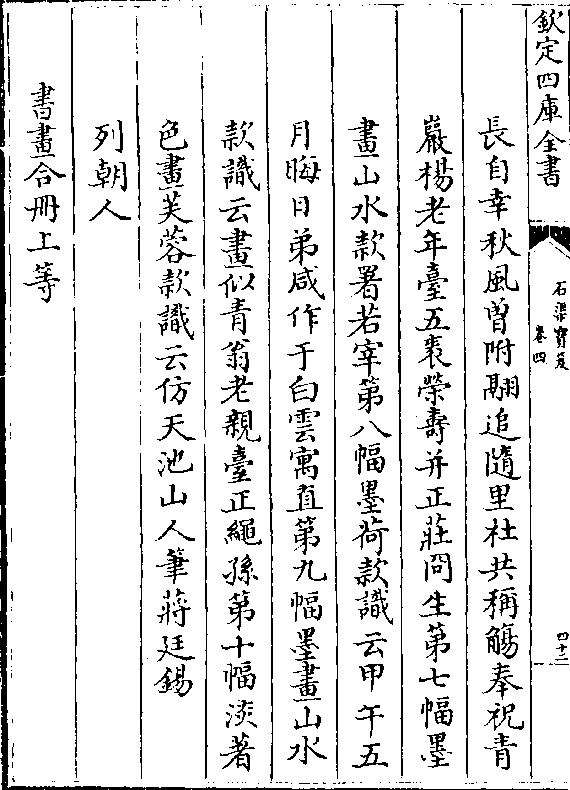 欽定四庫全書
石渠寶笈
卷四
四十二
長自幸秋風曽附翮追隨里社共稱觴奉祝青
巖楊老年臺五袠榮壽并正莊冏生第七幅墨
畫山水款署若宰第八幅墨荷款識云甲午五
月晦日弟咸作于白雲寓直第九幅墨畫山水
款識云畫似青翁老親臺正繩孫第十幅淡著
色畫芙蓉款識云仿天池山人筆蔣廷錫
列朝人
書畫合冊上等